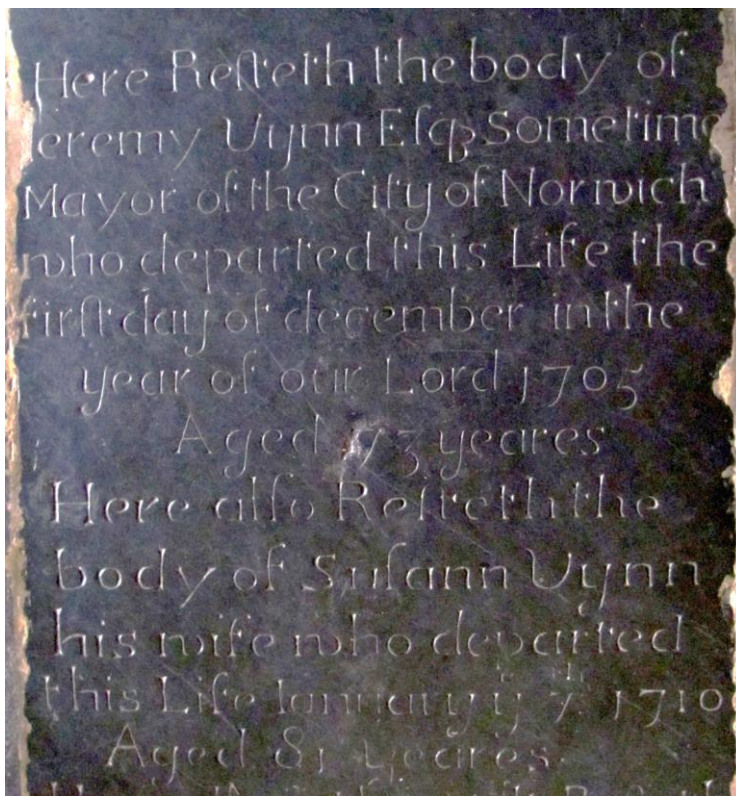 Here Reſteth the body of
Jeremy Vynn Eſqꝫ Sometime
Mayor of the City of Norwich
who departed this Life the
firſt day of december in the
year of our Lord 1705
Aged 73 yeares
Here alſo Reſteth the
body of Suſann Vynn
his wife who departed
this Life Ianuary yͤ 7ᵗʰ 1710
Aged 81 yeares